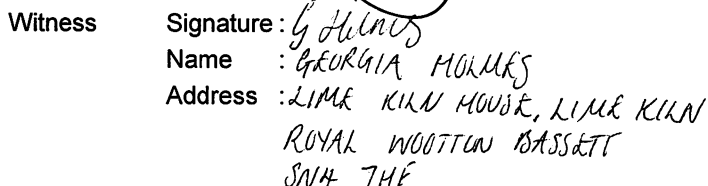 Witness Signature : G Holmes
Name : GEORGIA HOLMES
Address : LIME KILN HOUSE, LIME KILN
ROYAL WOOTTON BASSETT
SN4 7HF